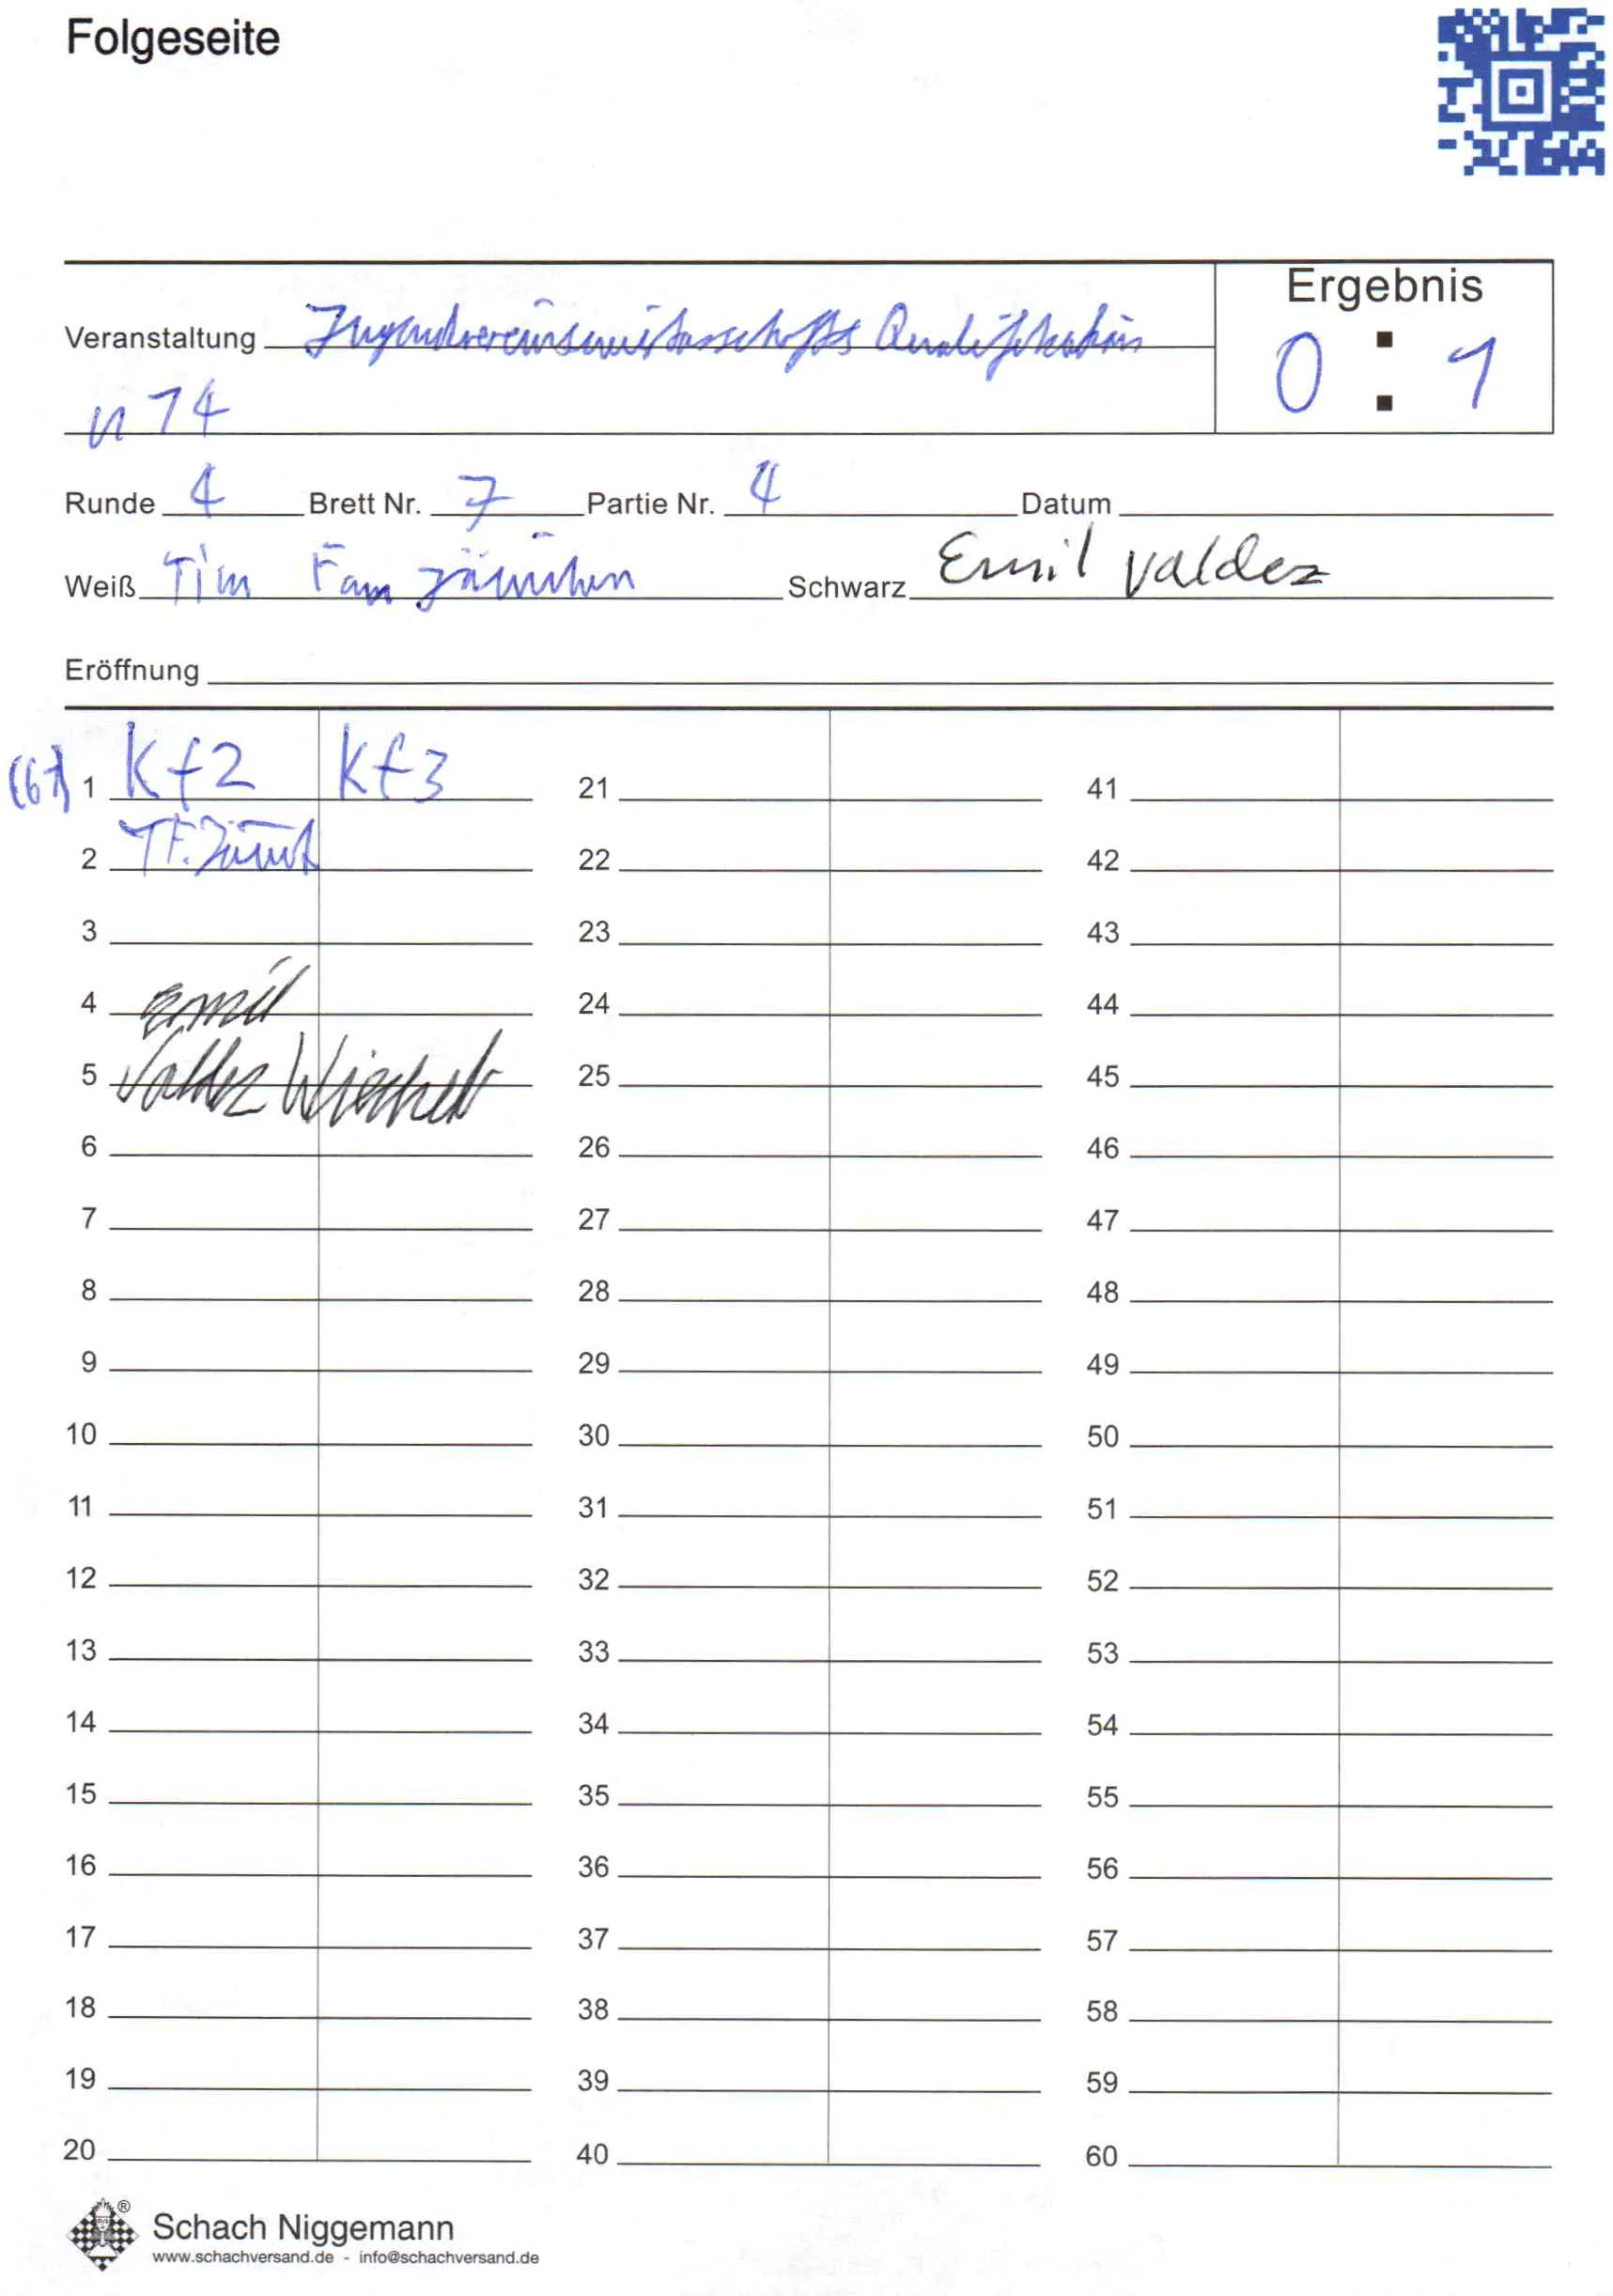 Folgeseite
Ergebnis
Veranstaltung Jugendvereinsmeisterschafts Qualifikation
0 : 1
u 14
Runde 4 Brett Nr. 7 Partie Nr. 4 Datum
Weiß Tim Fam Jämichen Schwarz Emil Valdez
Eröffnung
(61) 1 Kf2 Kf3 21 41
2 22 42
3 23 43
4 Emil 24 44
5 Valdez 25 45
6 26 46
7 27 47
8 28 48
9 29 49
10 30 50
11 31 51
12 32 52
13 33 53
14 34 54
15 35 55
16 36 56
17 37 57
18 38 58
19 39 59
20 40 60
® Schach Niggemann
www.schachversand.de - info@schachversand.de